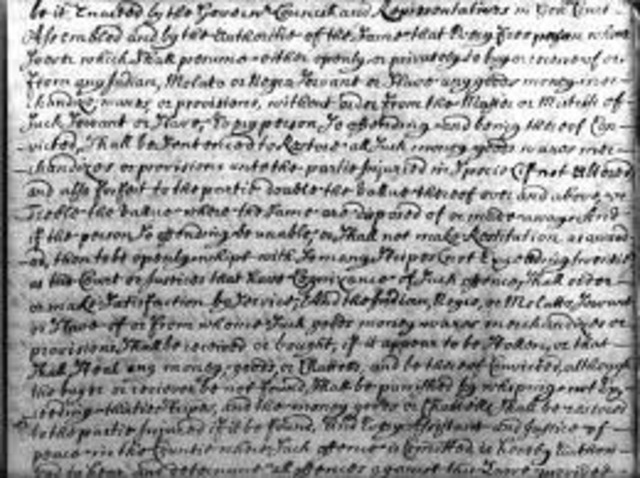 be it Enacted by the Govern.r Council and Representatives in Gen.ll Court
Assembled and by the Authoritie of the same that Every Free person
soever which shall presume either openly or privately to buy or receive of or
from any Indian, Molato or Negro servant or slave any goods money mer-
chandize wares or provisions, without order from the Master or Mistress of
such servant or slave, Every person so offending and being thereof Con-
victed, Shall be Sentenced to Restore all such money goods wares mer-
chandizes or provisions unto the partie Injured in Specie (if not altered)
and also forfeit to the partie double the value thereof over and above, or
treble the value where the same are disposed of or made away: And
if the person so offending be unable, or shall not make Restitution as award
ed, then to be openly whipt with so many Stripes (not Exceeding twentie)
as the Court or Justices that have Cognizance of such offence, shall order
or make Satisfaction by Service; And the Indian, Negro, or Molatto, Servant
or Slave of or from whome such goods money wares merchandizes or
provisions, Shall be received or bought, if it appear to be Stollen, or that
Shall Steal any money, goods, or Chattels, and be thereof Convicted, although
the buyer or reciever be not found, Shall be punished by whiping not Ex-
ceeding thirtie Stripes, and the money goods or Chattells, Shall be restored
to the partie Injured if it be found, and Every Assistant and Justice of
peace in the Countie where such offence is Comitted is hereby Authori
zed to hear and determine all offences against this Lawe